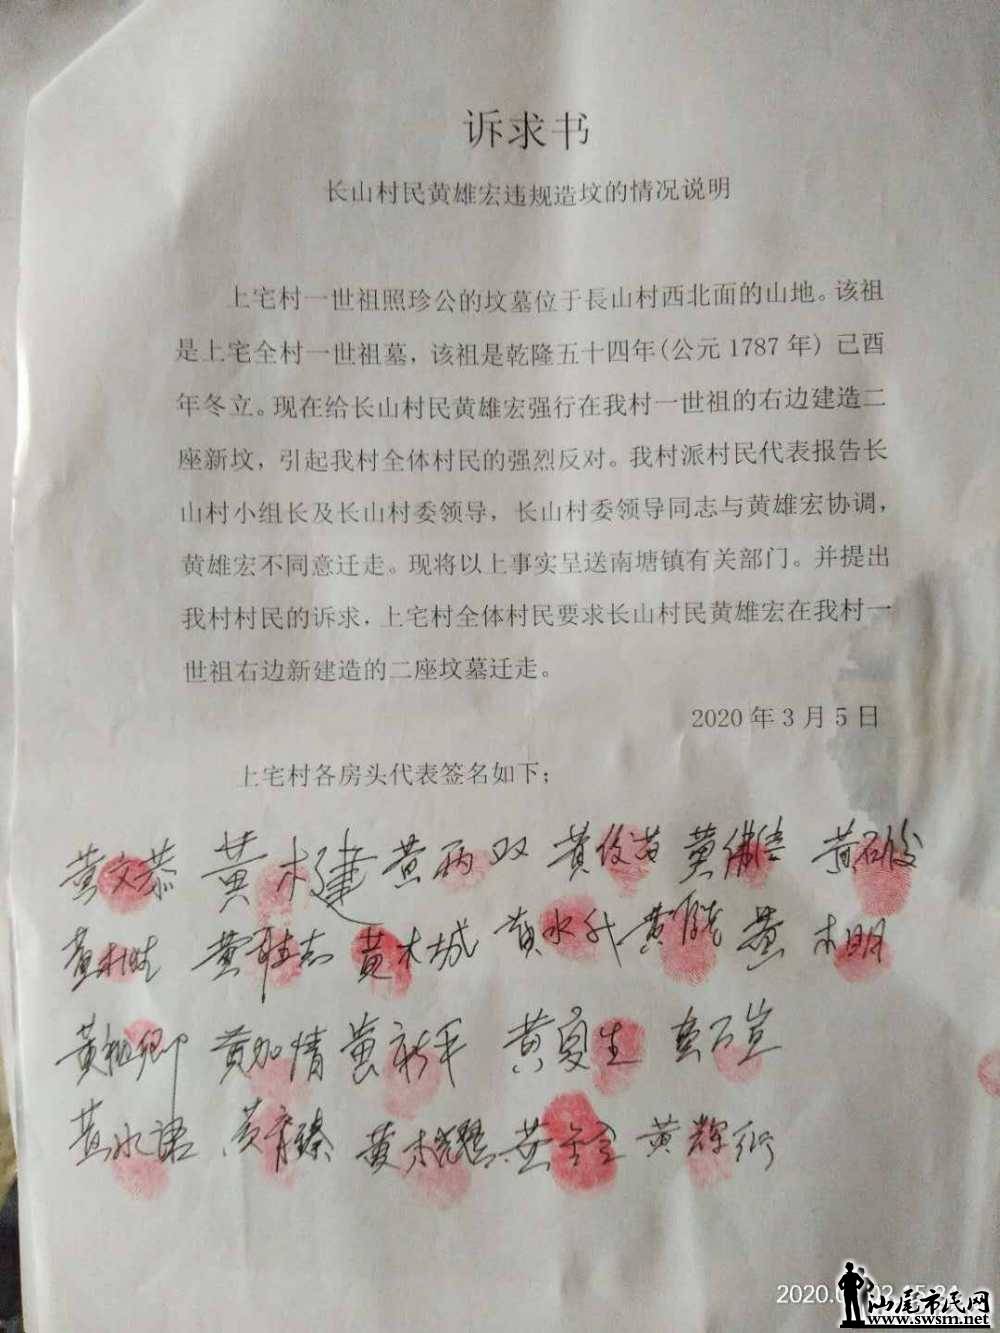 诉求书
长山村民黄雄宏违规造坟的情况说明
上宅村一世祖照珍公的坟墓位于長山村西北面的山地。该祖
是上宅全村一世祖墓，该祖是乾隆五十四年(公元1787年) 己酉
年冬立。现在给长山村民黄雄宏强行在我村一世祖的右边建造二
座新坟，引起我村全体村民的强烈反对。我村派村民代表报告长
山村小组长及长山村委领导，长山村委领导同志与黄雄宏协调，
黄雄宏不同意迁走。现将以上事实呈送南塘镇有关部门。并提出
我村村民的诉求，上宅村全体村民要求长山村民黄雄宏在我村一
世祖右边新建造的二座坟墓迁走。
2020年3月5日
上宅村各房头代表签名如下；
黄文恭 黄木建 黄两双 黄 黄 黄石
黄 黄 黄木城 黄水 黄 黄木明
黄 卿 黄加情 黄新平 黄 生 黄
黄水 黄育臻 黄木 黄 黄辉
2020. 02 15:24
汕尾市民网
www.swsm.net